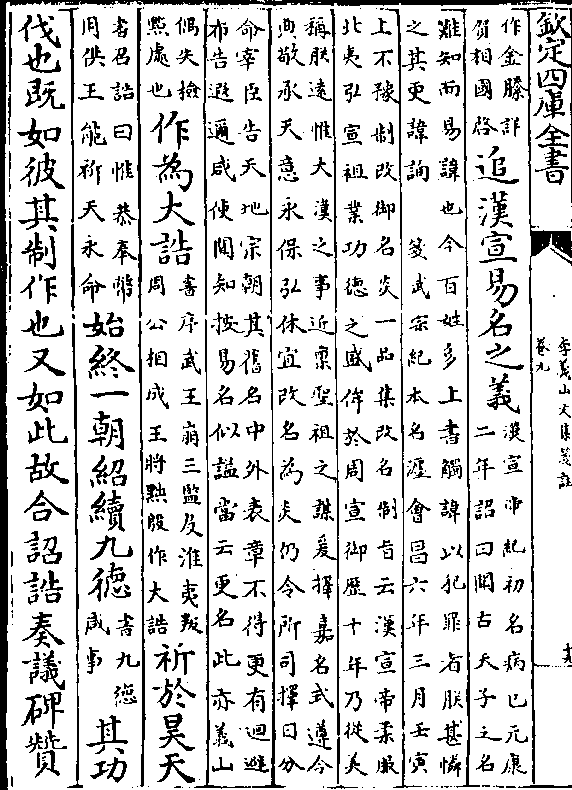 欽定四庫全書
李義山文集箋註
卷九
作金縢詳
賀相國啓
追漢宣易名之義
漢宣帝紀初名病已元康
二年詔曰聞古天子之名
難知而易諱也今百姓多上書觸諱以犯罪者朕甚憐
之其更諱詢 箋武宗紀本名瀍會昌六年三月壬寅
上不豫制改御名炎一品集改名制旨云漢宣帝柔服
北夷弘宣祖業功德之盛侔於周宣御歷十年乃從美
稱朕遠惟大漢之事近禀聖祖之謀爰擇嘉名式遵令
典敬承天意永保弘休宜改名為炎仍令所司擇日分
命宰臣告天地宗朝其舊名中外表章不得更有迴避
布告遐邇咸使聞知按易名似諡當云更名此亦義山
偶失檢
點處也
作為大誥
書序武王崩三監及淮夷叛
周公相成王將黜殷作大誥
祈於昊天
書召誥曰惟恭奉幣
用供王能祈天永命
始終一朝紹續九德
書九德
咸事
其功
伐也既如彼其制作也又如此故合詔誥奏議碑贊